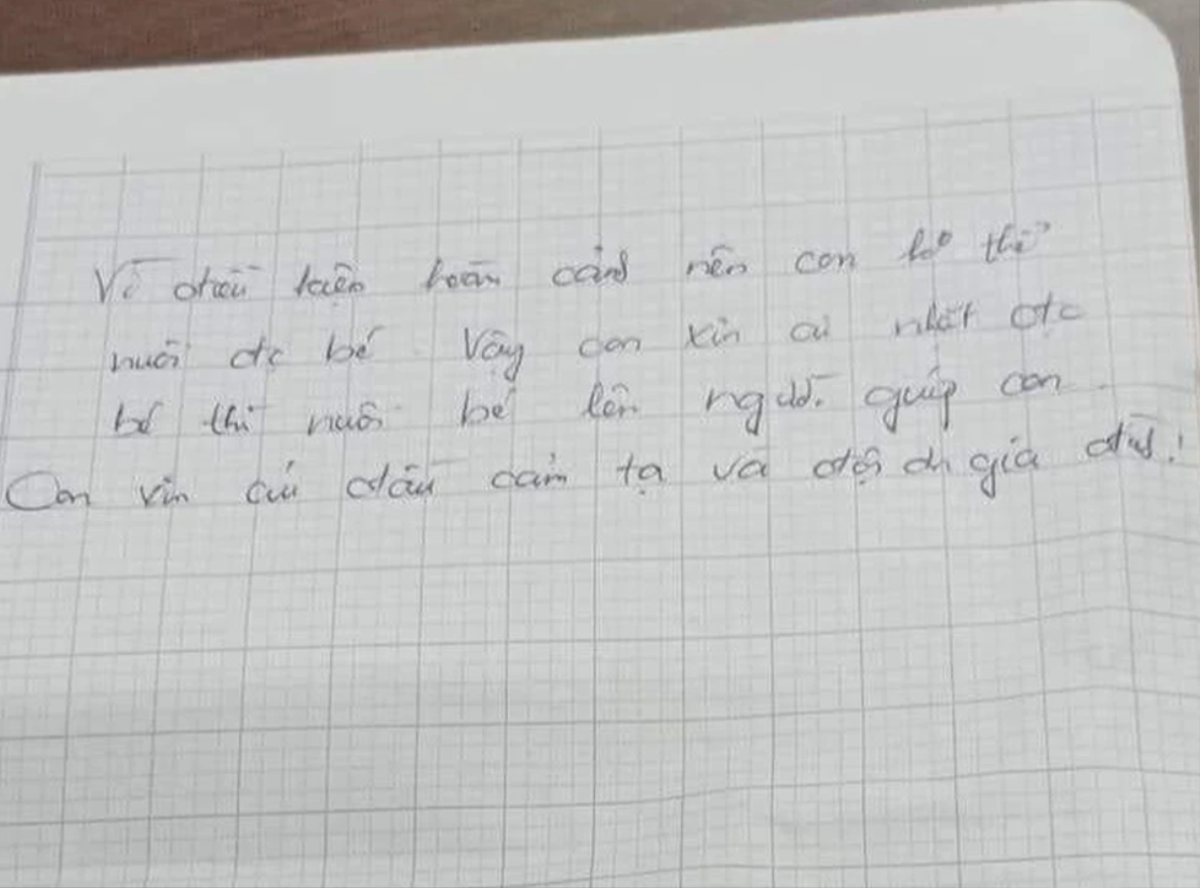 Vì điều kiện hoàn cảnh nên con ko thể
nuôi đc bé. Vậy con xin ai nhặt đc
bé thì nuôi bé lên người giúp con
Con xin cúi đầu cảm tạ và đội ơn gia đình!